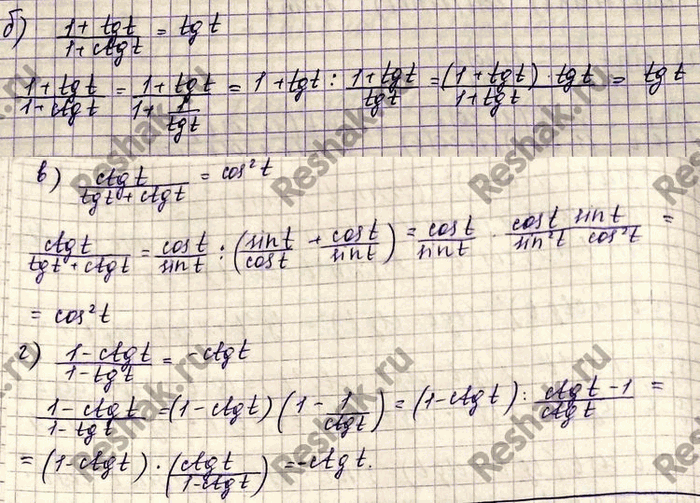 б) (1 + tgt)/(1 + ctgt) = tgt
(1 + tgt)/(1 + ctgt) = (1 + tgt)/(1 + 1/tgt) = 1 + tgt : (1 + tgt)/tgt = ((1 + tgt) · tgt)/(1 + tgt) = tgt
в) ctgt/(tgt + ctgt) = cos²t
ctgt/(tgt + ctgt) = cost/sint : (sint/cost + cost/sint) = cost/sint · (cost sint)/(sin²t cos²t) =
= cos²t
г) (1 - ctgt)/(1 - tgt) = -ctgt
(1 - ctgt)/(1 - tgt) = (1 - ctgt)(1 - 1/ctgt) = (1 - ctgt) : (ctgt - 1)/ctgt =
= (1 - ctgt) · (ctgt/(1 - ctgt)) = -ctgt.
Reshak.ru
Reshak.ru
Reshak.ru
Reshak.ru
Reshak.ru
Reshak.ru